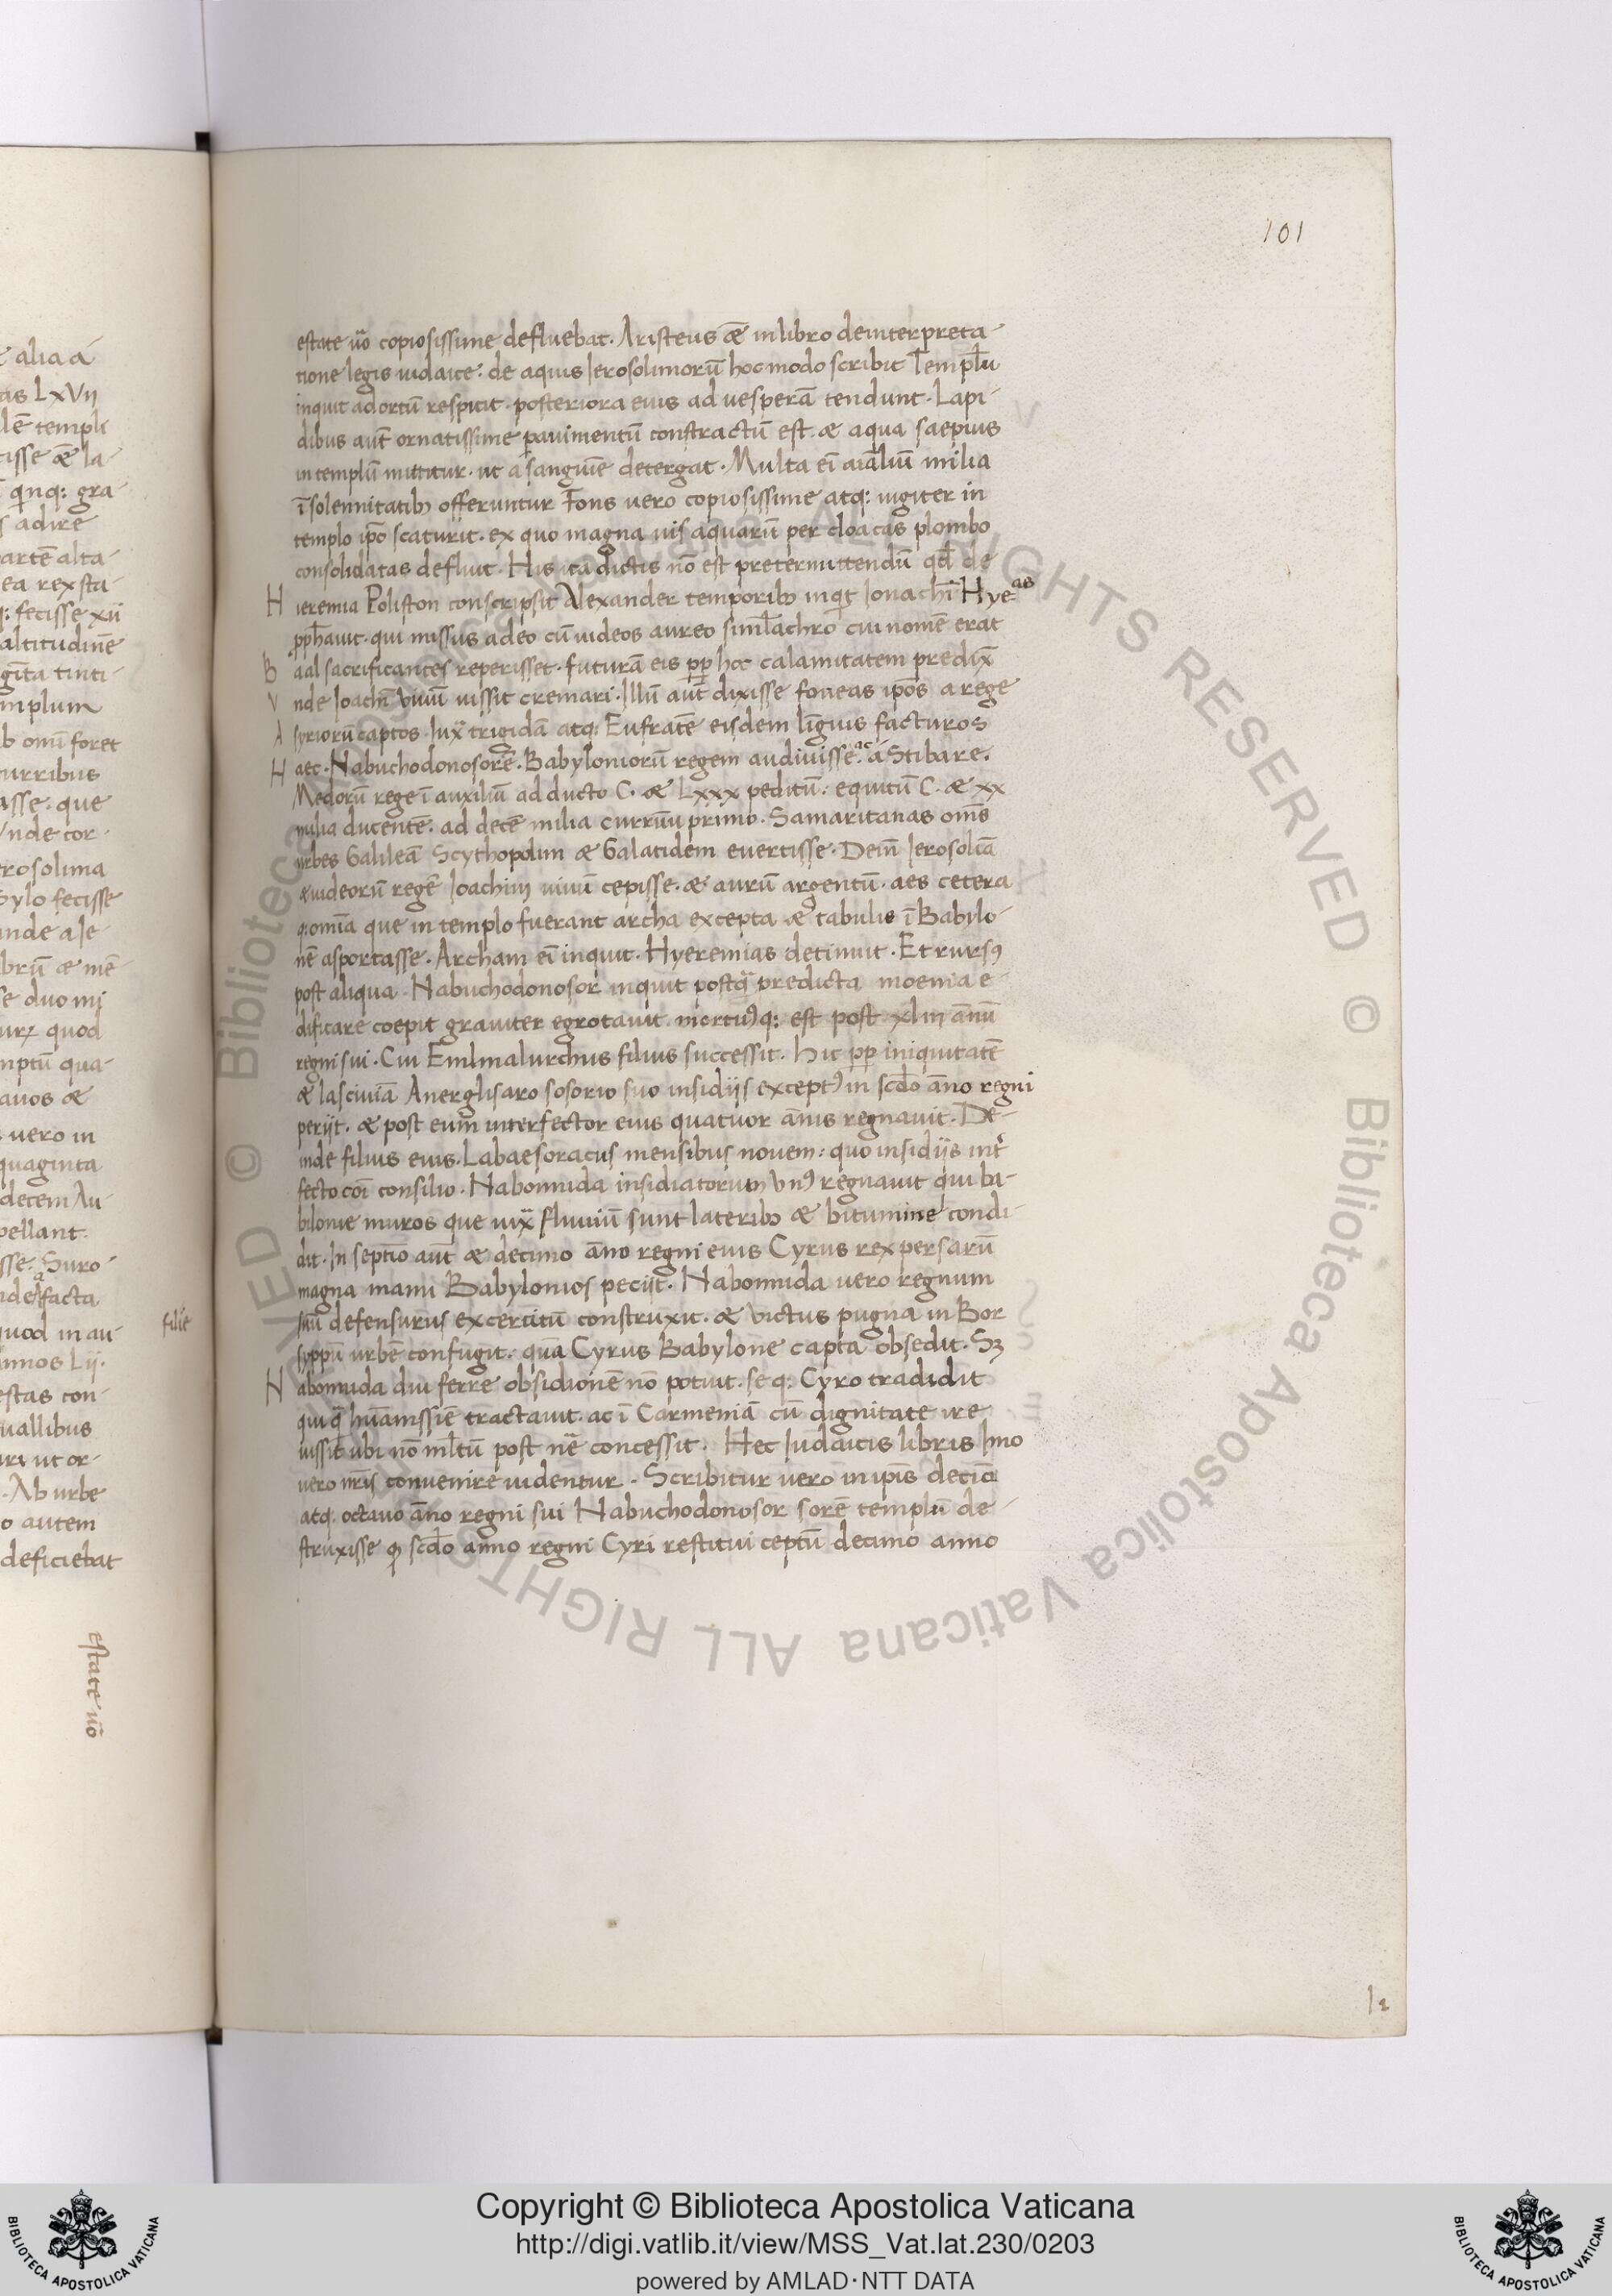 101
estate ũo copiosissime defluebat. Aristeus æ̃ in libro de interpreta-
tione legis iudaice: de aquis Ierosolimorũ hoc modo scribit Templũ
inquit ad ortũ respicit. posteriora eius ad uesperã tendunt. Lapi-
dibus aut̃ ornatissime pauimentũ constractũ est. æ aqua saepius
in templũ mittitur. ut a sanguĩe detergat. Multa eĩ aĩaliũ milia
ĩ solennitatib; offeruntur Fons uero copiosissime atq: iugiter in
templo ip̃o scaturit. ex quo magna uis aquarũ per cloacas plombo
consolidatas defluit. His ita dictis nõ est pretermittendũ qđ de
Hieremia Poliston conscripsit Alexander temporib; inqt Ionachĩ Hyeas
pp̃hauit. qui missus a deo cũ iudeos aureo siml̃achro cui nomẽ erat
Baal sacrificantes reperisset. futurã eis pp̃ hoc calamitatem predix̃
Vnde Ioachĩ uiuũ iussit cremari. Illũ aut̃ dixisse foneas ip̃os a rege
Asyriorũ captos. Iux̃ trigidã atq: Eufratẽ eisdem lĩguis facturos
Haec. Nabuchodonosorẽ. Babyloniorũ regem audiuisse. ac a Stibare.
Medorũ rege ĩ auxiliũ ad ducto C. æ Lxxx peditũ: equitũ C. æ xx
milia ducentẽ. ad decẽ milia curruũ primo. Samaritanas om̃s
urbes Galileã Scythopolim æ Galatidem euertisse. Deiñ Ierosolĩa
æ iudeorũ regẽ Ioachim uiuũ cepisse. æ aurũ argentũ. aes cetera
q: om̃ia que in templo fuerant archa excepta æ tabulis ĩ Babylo-
nẽ asportasse. Archam eĩ inquit. Hyeremias detinuit. Et rursꝰ
post aliqua. Nabuchodonosor inquit postq̃ predicta moenia e-
dificare coepit grauiter egrotauit. mortuꝰq: est post xliii annũ
regni sui. Cui Emlmalurchus filius successit. hic pp̃ iniquitatẽ
æ lasciuiã Anerglisaro sosorio suo insidijs exceptꝰ in scđo anno regni
perijt. æ post eum interfector eius quatuor annis regnauit. De-
inde filius eius. Labaesoracus mensibus nouem: quo insidijs int̃
fecto coĩ consilio. Nabonnida insidiatorum unꝰ regnauit qui ba-
bilonie muros que iux̃ fluuiũ sunt laterib; æ bitumine condi-
dit. In septĩo aut̃ æ decimo anno regni eius Cyrus rex persarũ
magna manu Babylonios peciit. Nabonnida uero regnum
suũ defensurus excercitũ construxit. æ uictus pugna in Bor
syppũ urbẽ confugit. quã Cyrus Babylone capta obsedit. Sꝫ
Nabonnida diu ferre obsidionẽ nõ potuit. se q: Cyro tradidit
qui q̃ hũanissiẽ tractauit. ac ĩ Carmeniã cũ dignitate ire
iussit ubi nõ ml̃tũ post nẽ concessit. Hec Iudaicis libris Imo
uero nr̃is conuenire uidentur. Scribitur uero in ip̃is decĩo
atq: octauo anno regni sui Nabuchodonosor sorẽ templũ de-
struxisse qꝫ scđo anno regni Cyri restitui ceptũ decimo anno
alia a
as LxVii
lẽ templi
isse æ la-
qĩnq: gra
s adire
artẽ alta-
ea rex sta-
q: fecisse xii
altitudinẽ
gĩta tinti-
mplum
b omĩ foret
urribus
asse. que
Vnde cor-
rosolima
ylo fecisse
inde a Ie-
brũ æ mẽ-
se duo mi
quod
mptũ qua-
auos æ
uero in
quaginta
decem Au-
pellant.
sse. Suro-
facta
quod in au-
annos Lij.
estas con-
uallibus
ut or-
Ab urbe
o autem
deficiebat
filiẽ
Estate ũo
Copyright © Biblioteca Apostolica Vaticana
http://digi.vatlib.it/view/MSS_Vat.lat.230/0203
powered by AMLAD·NTT DATA
BIBLIOTECA APOSTOLICA VATICANA
BIBLIOTECA APOSTOLICA VATICANA
© Biblioteca Apostolica Vaticana ALL RIGHTS RESERVED © Biblioteca Apostolica Vaticana ALL RIGHTS RESERVED